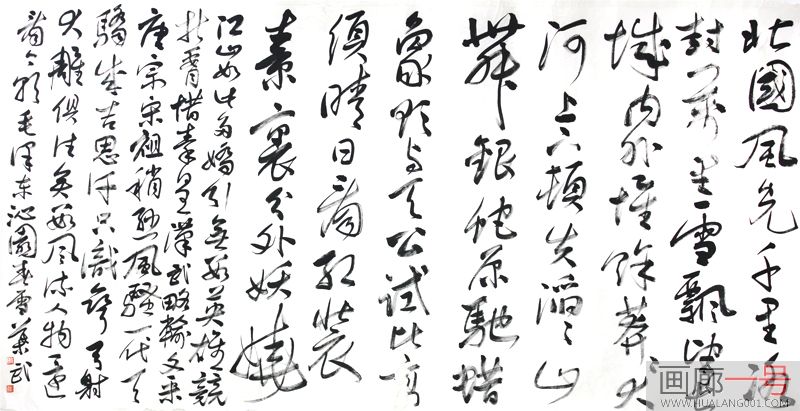 北國風光千里冰
封萬里雪飄望長
城内外惟餘莽莽大
河上下頓失滔滔山
舞銀蛇原馳蜡
象欲与天公試比高
須晴日看紅裝
素裹分外妖嬈
江山如此多嬌引無數英雄競
折腰惜秦皇漢武略輸文采
唐宗宋祖稍遜風騷一代天
驕成吉思汗只識彎弓射
大雕俱往矣數風流人物還
看今朝毛澤东沁園春雪葉武
画廊一号
WWW.HUALANG001.COM